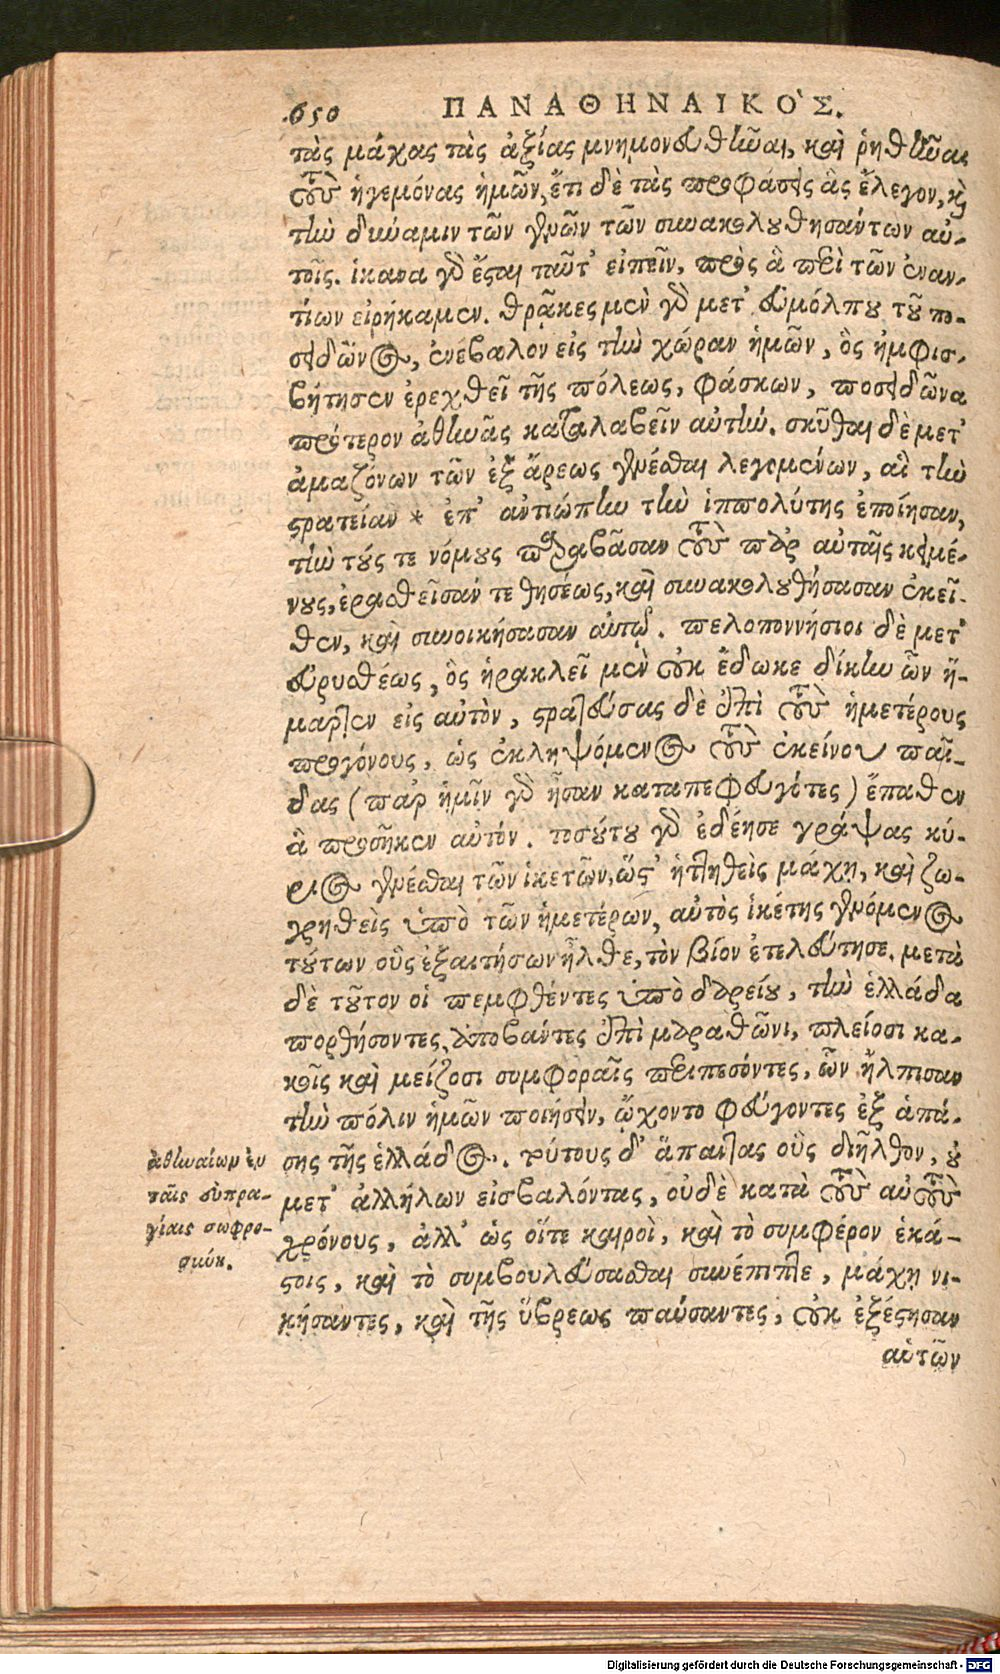 650 ΠΑΝΑΘΗΝΑΙΚΟ'Σ.
τὰς μάχας τὰς ἀξίας μνημονευθῆναι, καὶ ῥηθῆναι
τοὺς ἡγεμόνας ἡμῶν, ἔτι δὲ τὰς προφάσεις ἃς ἔλεγον, καὶ
τὴν δύναμιν τῶν γενῶν τῶν συνακολουθησάντων αὐ-
τοῖς. ἱκανα γὰρ ἔσται ταῦτ' εἰπεῖν, πρὸς ἃ περὶ τῶν ἐναν-
τίων εἰρήκαμεν. θρᾷκες μὲν γὰρ μετ' εὐμόλπου τοῦ πο-
σειδῶνος, ἐνέβαλον εἰς τὴν χώραν ἡμῶν, ὃς ἠμφισ-
βήτησεν ἐρεχθεῖ τῆς πόλεως, φάσκων, ποσειδῶνα
πρότερον ἀθηνᾶς καταλαβεῖν αὐτήν. σκῦθαι δὲ μετ'
ἀμαζόνων τῶν ἐξ ἄρεως γενέσθαι λεγομένων, αἳ τὴν
στρατείαν * ἐπ' ἀντιώπην τὴν ἱππολύτης ἐποίησαν,
τὴν τούς τε νόμους παραβᾶσαν τοὺς παρ αὐταῖς κειμέ-
νους, ἐρασθεῖσάν τε θησέως, καὶ συνακολουθήσασαν ἐκεῖ-
θεν, καὶ συνοικήσασαν αὐτῷ. πελοποννήσιοι δὲ μετ'
εὐρυσθέως, ὃς ἡρακλεῖ μὲν οὐκ ἔδωκε δίκην ὧν ἥ-
μαρτεν εἰς αὐτὸν, στρατεύσας δὲ ἐπὶ τοὺς ἡμετέρους
προγόνους, ὡς ἐκληψόμενος τοὺς ἐκείνου παῖ-
δας (παρ ἡμῖν γὰρ ἦσαν καταπεφευγότες) ἔπαθεν
ἃ προσῆκεν αὐτόν. τοσούτου γὰρ ἐδέησε γράψας κύ-
ριος γενέσθαι τῶν ἱκετῶν, ὥστ' ἡττηθεὶς μάχῃ, καὶ ζω-
γρηθεὶς ὑπὸ τῶν ἡμετέρων, αὐτὸς ἱκέτης γενόμενος
τούτων οὓς ἐξαιτήσων ἦλθε, τὸν βίον ἐτελεύτησε. μετὰ
δὲ τοῦτον οἱ πεμφθέντες ὑπὸ δαρείου, τὴν ἑλλάδα
πορθήσοντες, ἀποβάντες ἐπὶ μαραθῶνι, πλείοσι κα-
κοῖς καὶ μείζοσι συμφοραῖς περιπεσόντες, ὧν ἤλπισαν
τὴν πόλιν ἡμῶν ποιήσειν, ᾤχοντο φεύγοντες ἐξ ἁπά-
σης τῆς ἑλλάδος. τούτους δ' ἅπαντας οὓς διῆλθον, οὐ
μετ' ἀλλήλων εἰσβαλόντας, οὐδὲ κατὰ τοὺς αὐτοὺς
χρόνους, ἀλλ' ὡς οἵτε καιροὶ, καὶ τὸ συμφέρον ἑκά-
στοις, καὶ τὸ συμβουλεύσασθαι συνέπιπτε, μάχῃ νι-
κήσαντες, καὶ τῆς ὕβρεως παύσαντες, οὐκ ἐξέστησαν
αὐτῶν
ἀθηναίων ἐν
ταῖς εὐπρα-
γίαις σωφρο-
σύνη.